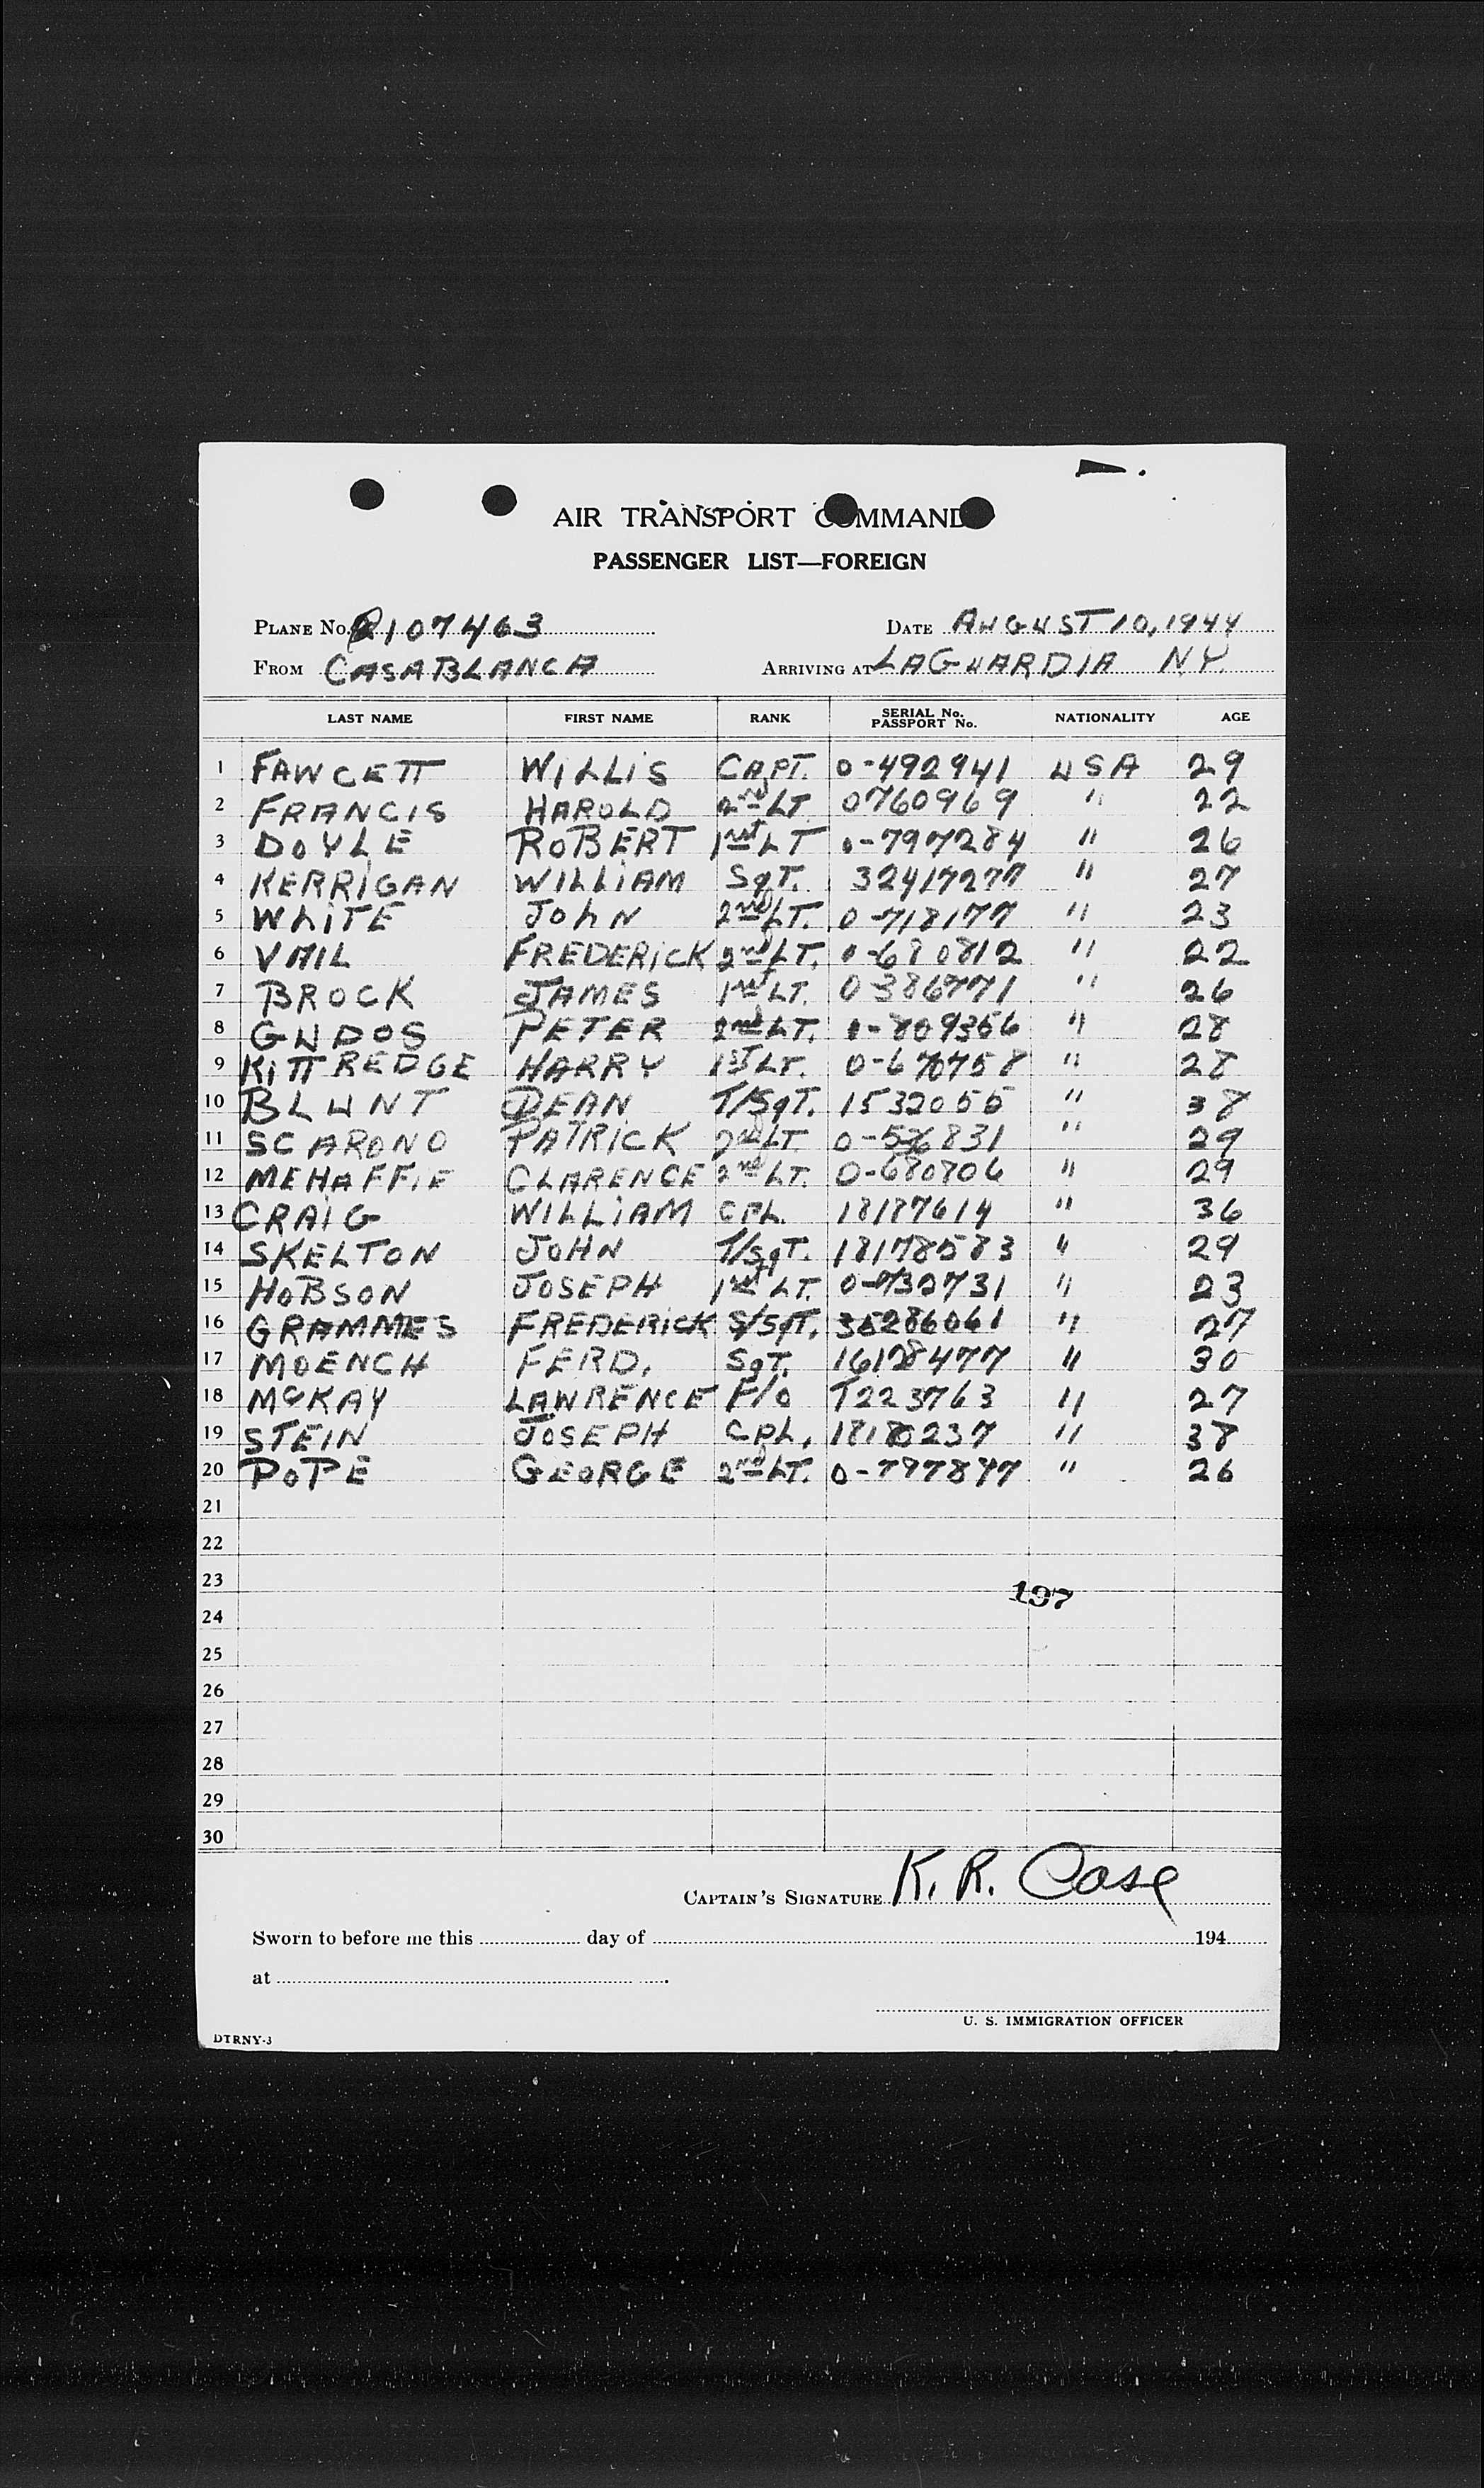 AIR TRANSPORT COMMAND
PASSENGER LIST—FOREIGN
PLANE No. 2107463 DATE AUGUST 10, 1944
FROM CASABLANCA ARRIVING AT LAGUARDIA N.Y.
LAST NAME FIRST NAME RANK SERIAL No. PASSPORT No. NATIONALITY AGE
1 FAWCETT WILLIS CAPT. 0-492941 USA 29
2 FRANCIS HAROLD 2nd LT. 0760969 " 22
3 DOYLE ROBERT 1st LT 0-797284 " 26
4 KERRIGAN WILLIAM SgT. 32417277 " 27
5 WhITE JOhN 2nd LT. 0-718177 " 23
6 VAIL FREDERICK 2nd LT. 0-680812 " 22
7 BROCK JAMES 1st LT. 0-386771 " 26
8 GUDOS PETER 2nd LT. 0-809356 " 28
9 KITTREDGE HARRY 1ST LT. 0-670758 " 28
10 BLUNT DEAN T/SgT. 1532055 " 38
11 SCARONO PATRICK 2nd LT. " 29
12 MEHAFFIE CLARENCE 2nd LT. 0-680806 " 29
13 CRAIG WILLIAM CPL. 18187614 " 36
14 SKELTON JOHN T/SgT. 18178583 " 29
15 HOBSON JOSEPH 1st LT. 0-732731 " 23
16 GRAMMES FREDERICK S/SgT. 35286061 " 27
17 MOENCH FERD. SgT. 16128477 " 30
18 McKAY LAWRENCE F/O T223763 " 27
19 STEIN JOSEPH CPL. 18180237 " 38
20 POPE GEORGE 2nd LT. 0-797847 " 26
21
22
23
197
24
25
26
27
28
29
30
CAPTAIN'S SIGNATURE K. R. Case
Sworn to before me this day of 194
at
U. S. IMMIGRATION OFFICER
DTRNY-3